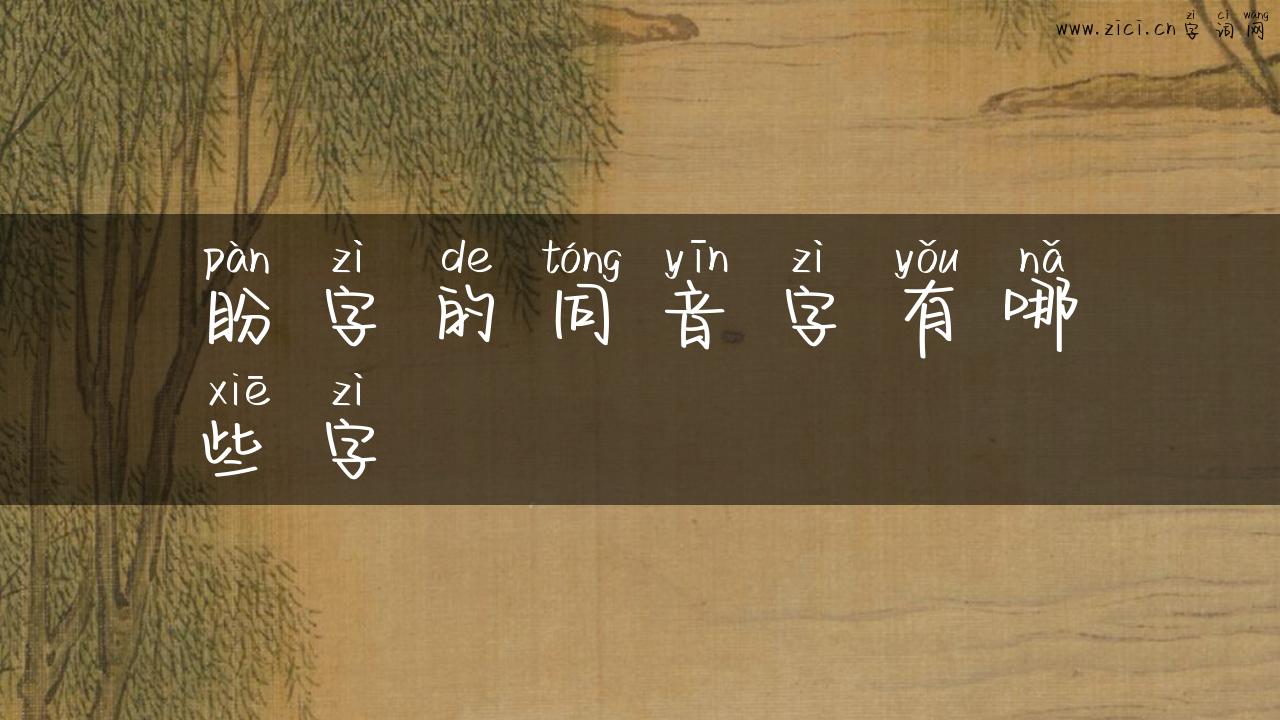 zì cí wǎng
www.zici.cn 字词网
pàn zì de tóng yīn zì yǒu nǎ
盼字的同音字有哪
xiē zì
些字